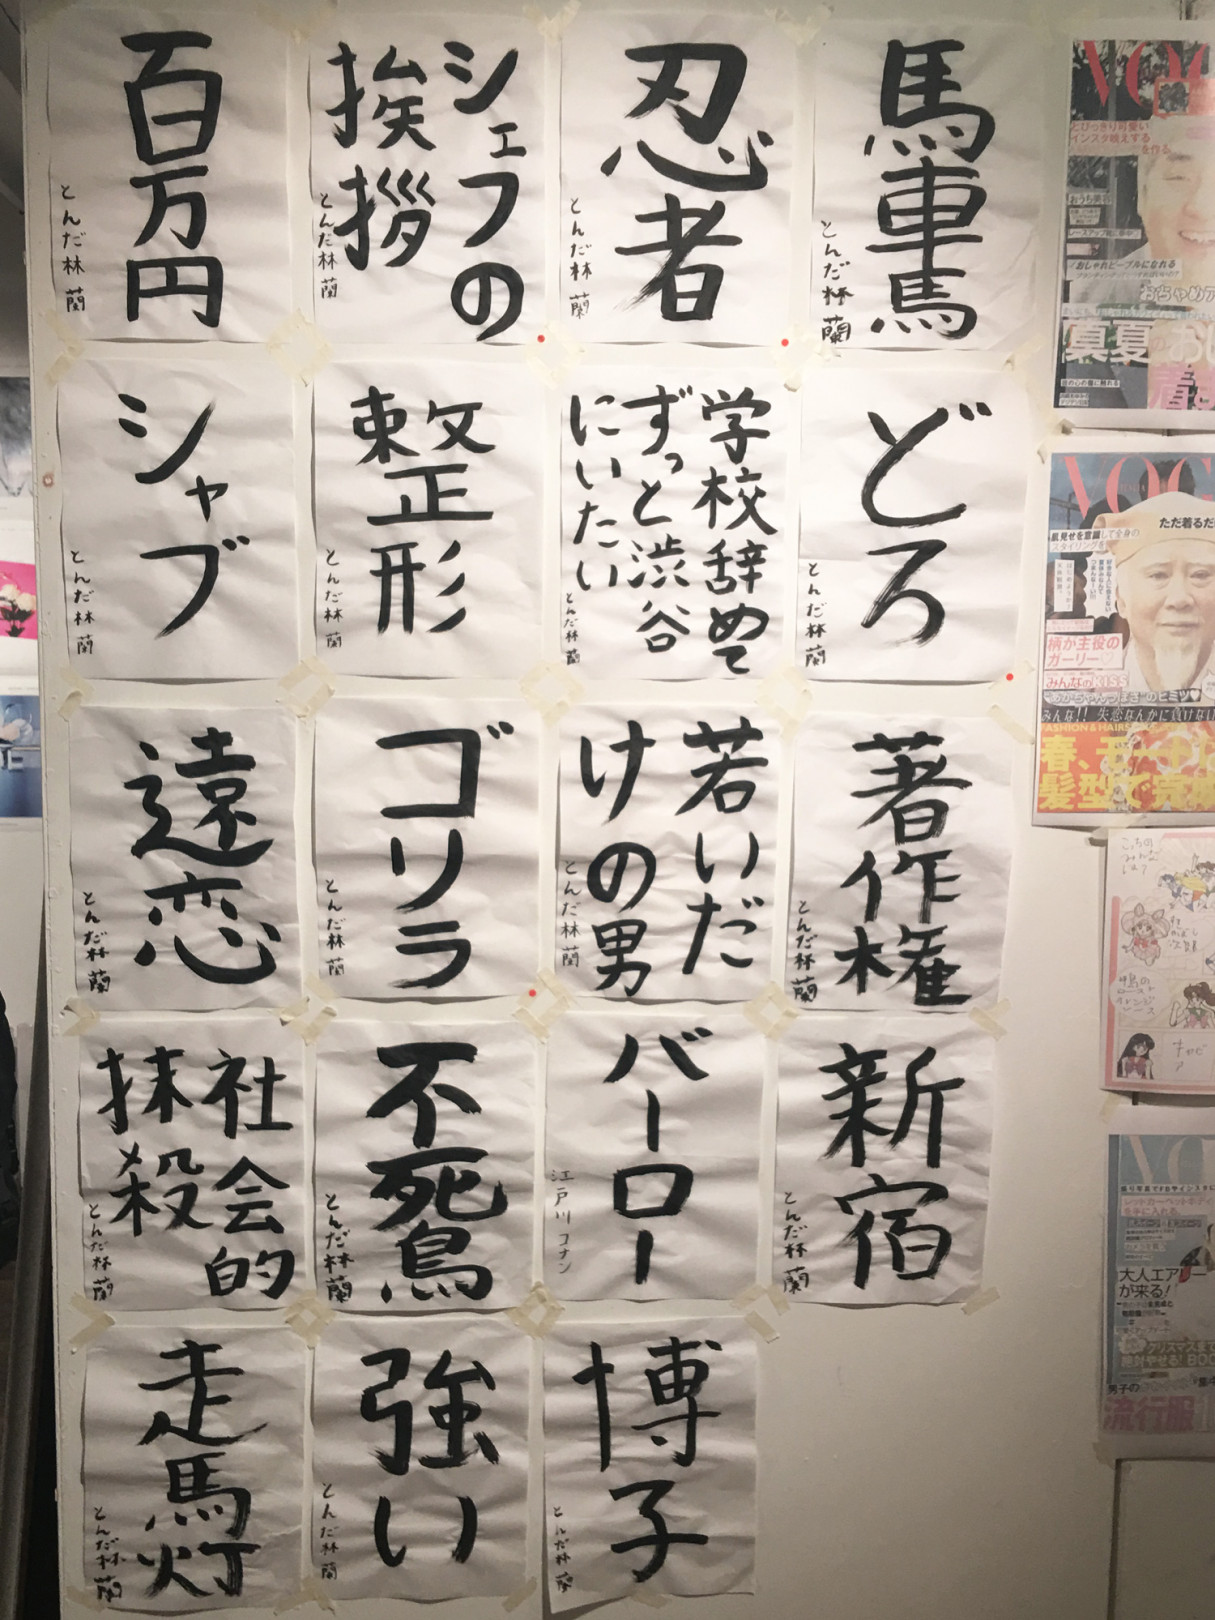 百万円
とんだ林 蘭
シェフの
挨拶
とんだ林 蘭
忍者
とんだ林 蘭
馬車馬
とんだ林 蘭
シャブ
とんだ林 蘭
整形
とんだ林 蘭
学校辞めて
ずっと渋谷
にいたい
とんだ林 蘭
どろ
とんだ林 蘭
遠恋
とんだ林 蘭
ゴリラ
とんだ林 蘭
若いだ
けの男
とんだ林 蘭
著作権
とんだ林 蘭
社会的
抹殺
とんだ林 蘭
不死鳥
とんだ林 蘭
バーロー
江戸川コナン
新宿
とんだ林 蘭
走馬灯
とんだ林 蘭
強い
とんだ林 蘭
博子
とんだ林 蘭
VOG
とびっきり可愛い
インスタ映えする
を作る
おしゃれピープルになれる
おちゃめ
真夏のお
VOG
ただ着るだ
肌見せを意識して全身の
スタイリングを
柄が主役の
ガーリー♡
みんなのKISS
のヒミツ♥
みんな!! 失恋なんかに負けない
FASHION & HAIR
春、モード
髪型で
こっちの
みんな
キャビ
ア
VO
レッドカーペット
を手に入れる
大人エアリー
が来る!
クリスマスまで
絶対やせる!
男子の
流行服